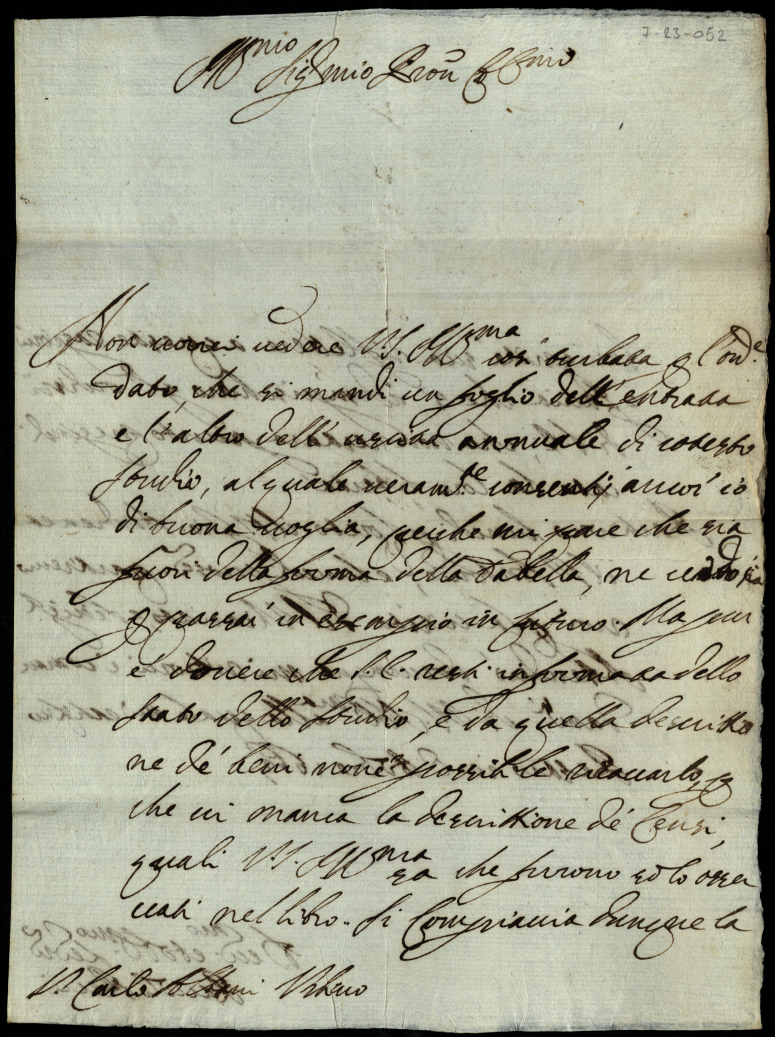 7-23-052
Ill.mo Sig.r mio Pron Col.mo
Non vorrei vedere V.S. Ill.ma così turbata p l'ord.e
dato, che si mandi un foglio dell'entrata
e l'altro dell'uscita annuale di cotesto
studio, al quale veram.te consentij ancor io
di buona voglia, perche mi pare che sia
fuori della forma della Tabella, ne
passi in essempio in futuro. Ma pur
è dovere che S.E. resti informata dello
stato dello studio, e da quella descritio
ne de' beni non è possibile ricavarlo, p
che vi manca la descrittione de' Censi,
quali V.S. Ill.ma sa che furono solo osser
vati nel libro. Si Compiaccia dunque la
S.r Carlo Urbino